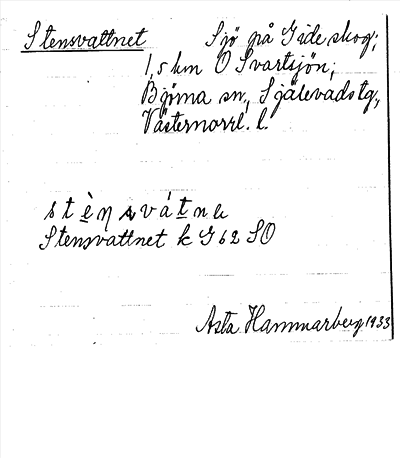 Stensvattnet Sjö på Gide skog;
1,5 km O Svartsjön;
Björna sn, Själevads tg.,
Västernorrl. l.
Stensvattnet k G 62 SO
Asta Hammarberg 1933